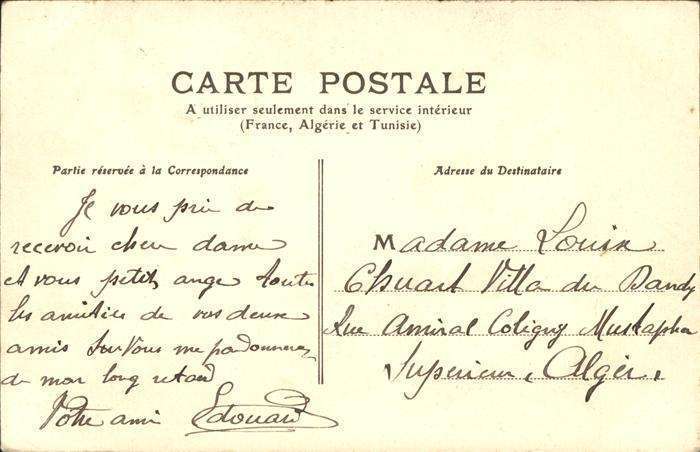 CARTE POSTALE
A utiliser seulement dans le service intérieur
(France, Algérie et Tunisie)
Partie réservée à la Correspondance
Je vous prie de
recevoir cher dame
et vous petits ange toutes
les amitiés de vos deux
amis vous me pardonnerez
de mon long retard
Votre ami Edouard
Adresse du Destinataire
Madame Louise
Chuart Villa du Dandy
Rue Amiral Coligny Mustapha
Superieur, Alger,